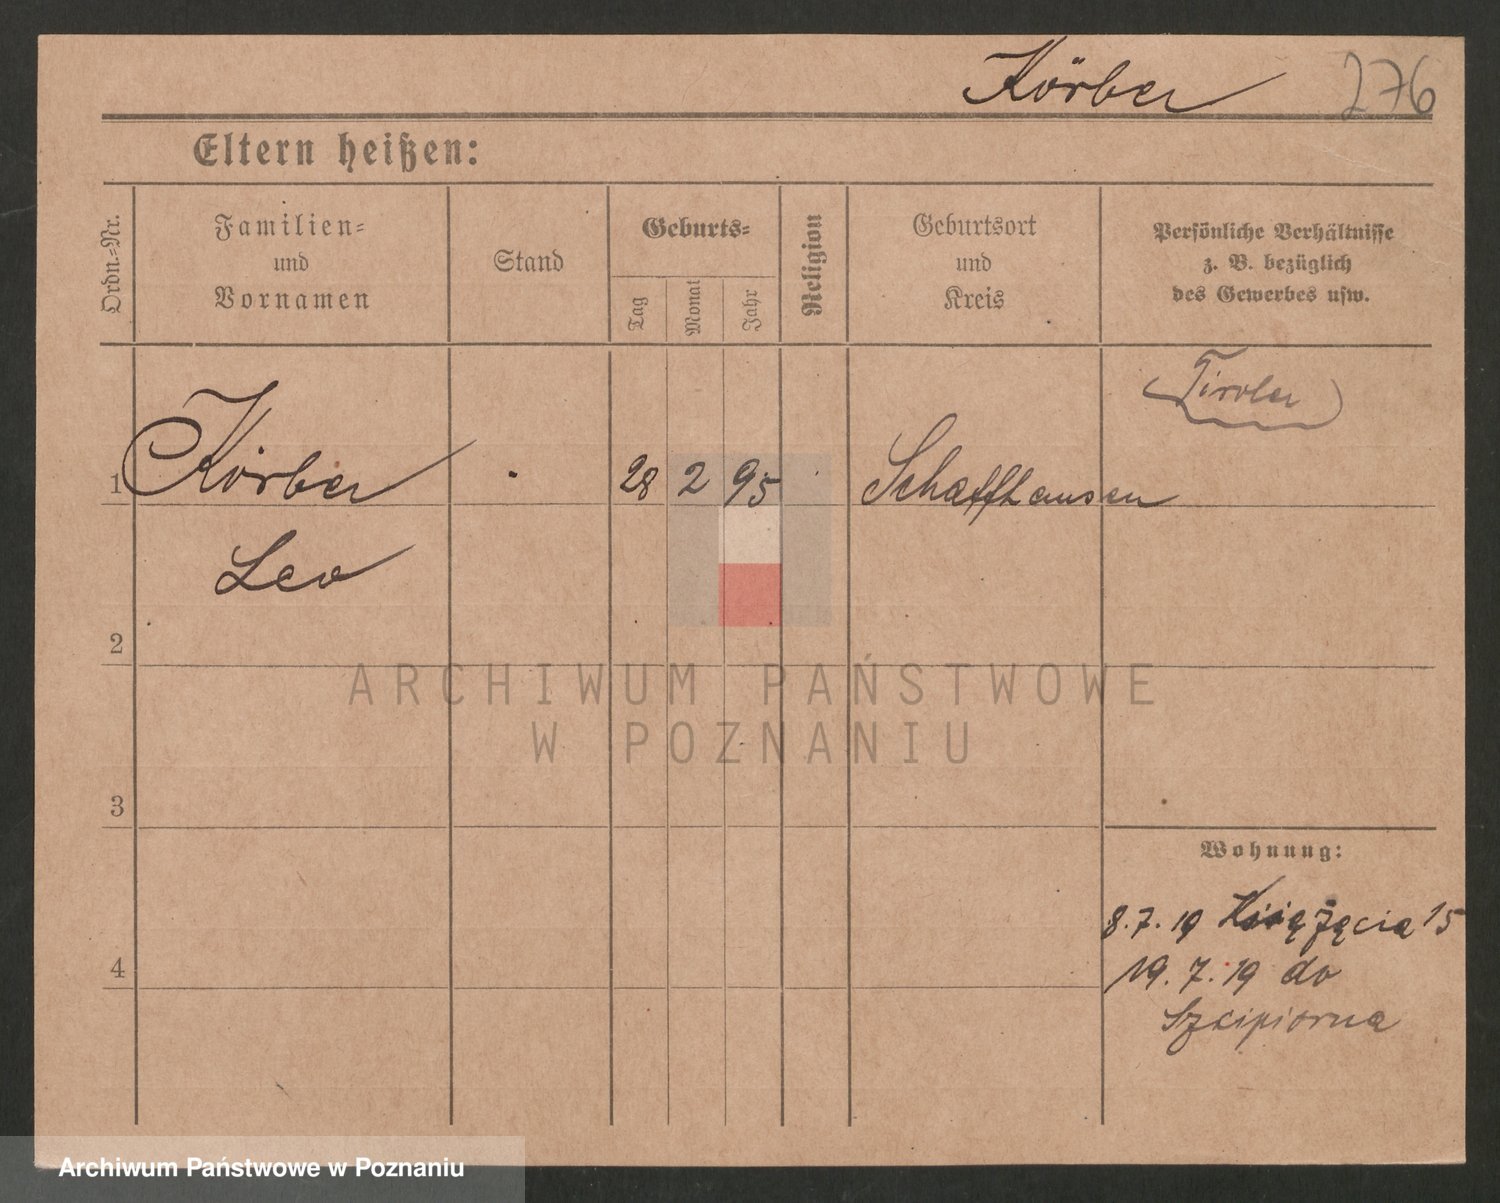 Körber 276
Eltern heißen:
Ordn.-Nr.
Familien-
und
Vornamen
Stand
Geburts-
Tag
Monat
Jahr
Religion
Geburtsort
und
Kreis
Persönliche Verhältnisse
z. B. bezüglich
des Gewerbes usw.
Tiroler
1 Körber 28 2 95 Schaffhausen
Leo
2
ARCHIWUM PAŃSTWOWE
W POZNANIU
3
Wohnung:
8.7.19 Książęcia 15
4
19.7.19 do
Szczipiorna
Archiwum Państwowe w Poznaniu